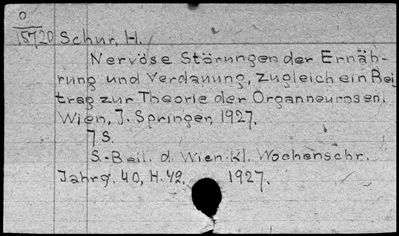 O
15720 Schur, H.
Nervöse Störungen der Ernäh-
rung und Verdauung, zugleich ein Bei
trag zur Theorie der Organneurosen.
Wien, J. Springer, 1927.
7 S.
S.-Beil. d. Wien. kl. Wochenschr.
Jahrg. 40, H. 42. 1927.